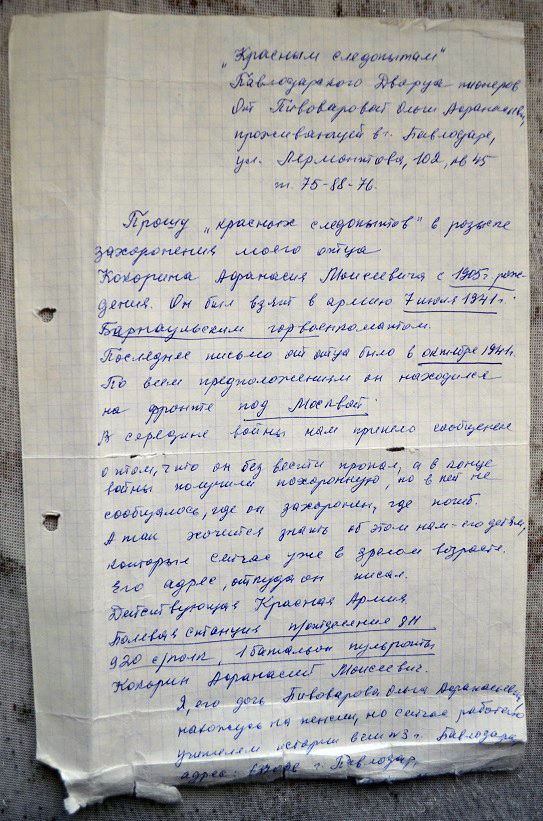 „Красным следопытам"
Павлодарского Дворца пионеров
От Пивоваровой Ольги Афанасьевны,
проживающей в г. Павлодаре,
ул. Лермонтова, 102, кв 45
т. 75-88-76.
Прошу „красных следопытов" в розыске
захоронения моего отца
Кокорина Афанасия Моисеевича с 1905г рож-
дения. Он был взят в армию 7 июля 1941г.
Барнаульским горвоенкоматом.
Последнее письмо от отца было в октябре 1941г.
По всем предположениям он находился
на фронте под Москвой.
В середине войны нам пришло сообщение
о том, что он без вести пропал, а в конце
войны получили похоронную, но в ней не
сообщалось, где он захоронен, где погиб.
А так хочится знать об этом нам-его детям,
которые сейчас уже в зрелом возрасте.
Его адрес, откуда он писал.
Действующая Красная Армия
Полевая станция
920 с/полк, 1 батальон пульроты
Кокорин Афанасий Моисеевич.
Я, его дочь Пивоварова Ольга Афанасьевна,
нахожусь на пенсии, но сейчас работаю
учителем истории в г. Павлодара
адрес: г. Павлодар,